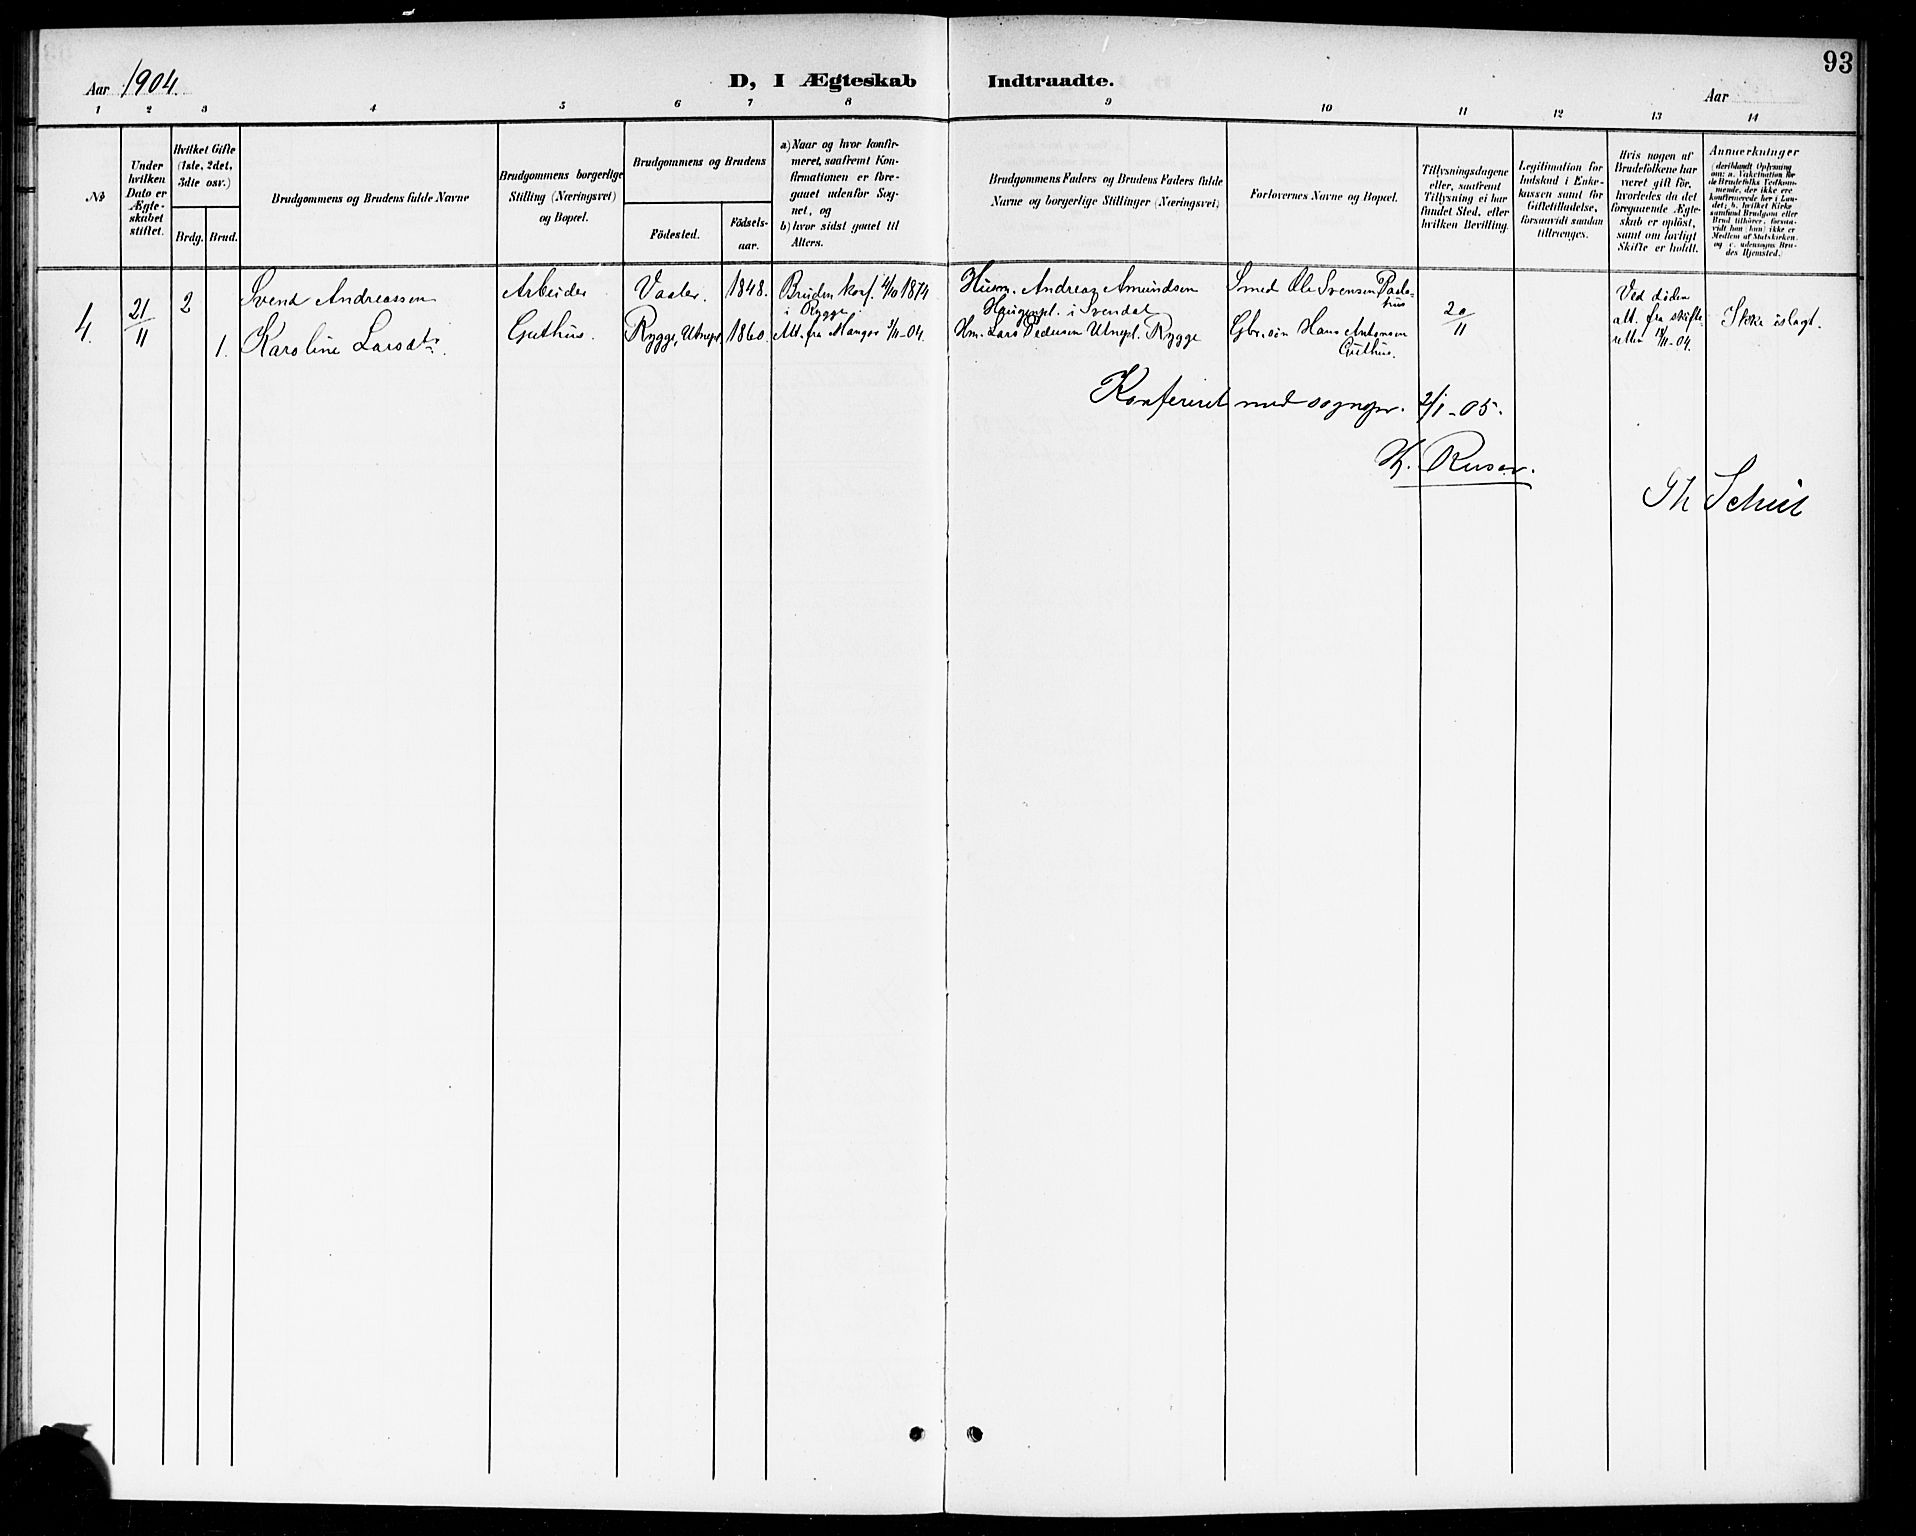 93
Aar 1904.
D, I Ægteskab Indtraadte.
Aar
1 2 3 4 5 6 7 8 9 10 11 12 13 14
No
Under hvilken Dato er Ægteskabet stiftet.
Hvilket Gifte (1ste, 2det, 3die osv.)
Brdg. Brud.
Brudgommens og Brudens fulde Navne
Brudgommens borgerlige Stilling (Næringsvei) og Bopæl.
Brudgommens og Brudens
Födested.
Födsels-aar.
a) Naar og hvor konfirmeret, saafremt Konfirmationen er foregaaet udenfor Sognet, og
b) hvor sidst gaaet til Alters.
Brudgommens Faders og Brudens Faders fulde Navne og borgerlige Stillinger (Næringsvei)
Forlovernes Navne og Bopæl.
Tillysningsdagene eller, saafremt Tillysning ei har fundet Sted, efter hvilken Bevilling.
Legitimation for Indskud i Enkekassen samt for Giftetilladelse, forsaavidt saadan tiltrænges.
Hvis nogen af Brudefolkene har været gift för, hvorledes da det foregaaende Ægteskab er oplöst, samt om lovligt Skifte er holdt.
Anmærkninger (deriblandt Oplysning om: a. Vakcination for de Brudefolks Vedkommende, der ikke ere konfirmerede her i Landet; b. hvilket Kirkesamfund Brudgom eller Brud tilhører, forsaavidt han (hun) ikke er Medlem af Statskirken, og c. udensogns Brudes Hjemsted.)
4. 21/11 2 Svend Andreassen Arbeider Vaaler. 1848. Bruden konf. 4/10 1874 i Rygge. Husm. Andreas Amundsen Haugenpl. i Svendal Smed Ole Svensen 20/11 Ved döden att. fra skifteretten 18/11-04. Ikke islagt.
1. Karoline Larsdtr. Guthus. Rygge, 1860. Att. fra Manger 3/11-04. Hm. Lars Pedersen Utnepl. Rygge Gbr.sön Hans Antonsen Guthus.
Konfereret med sognepr. 2/1-05.
H. Ruser.
Th Scheel